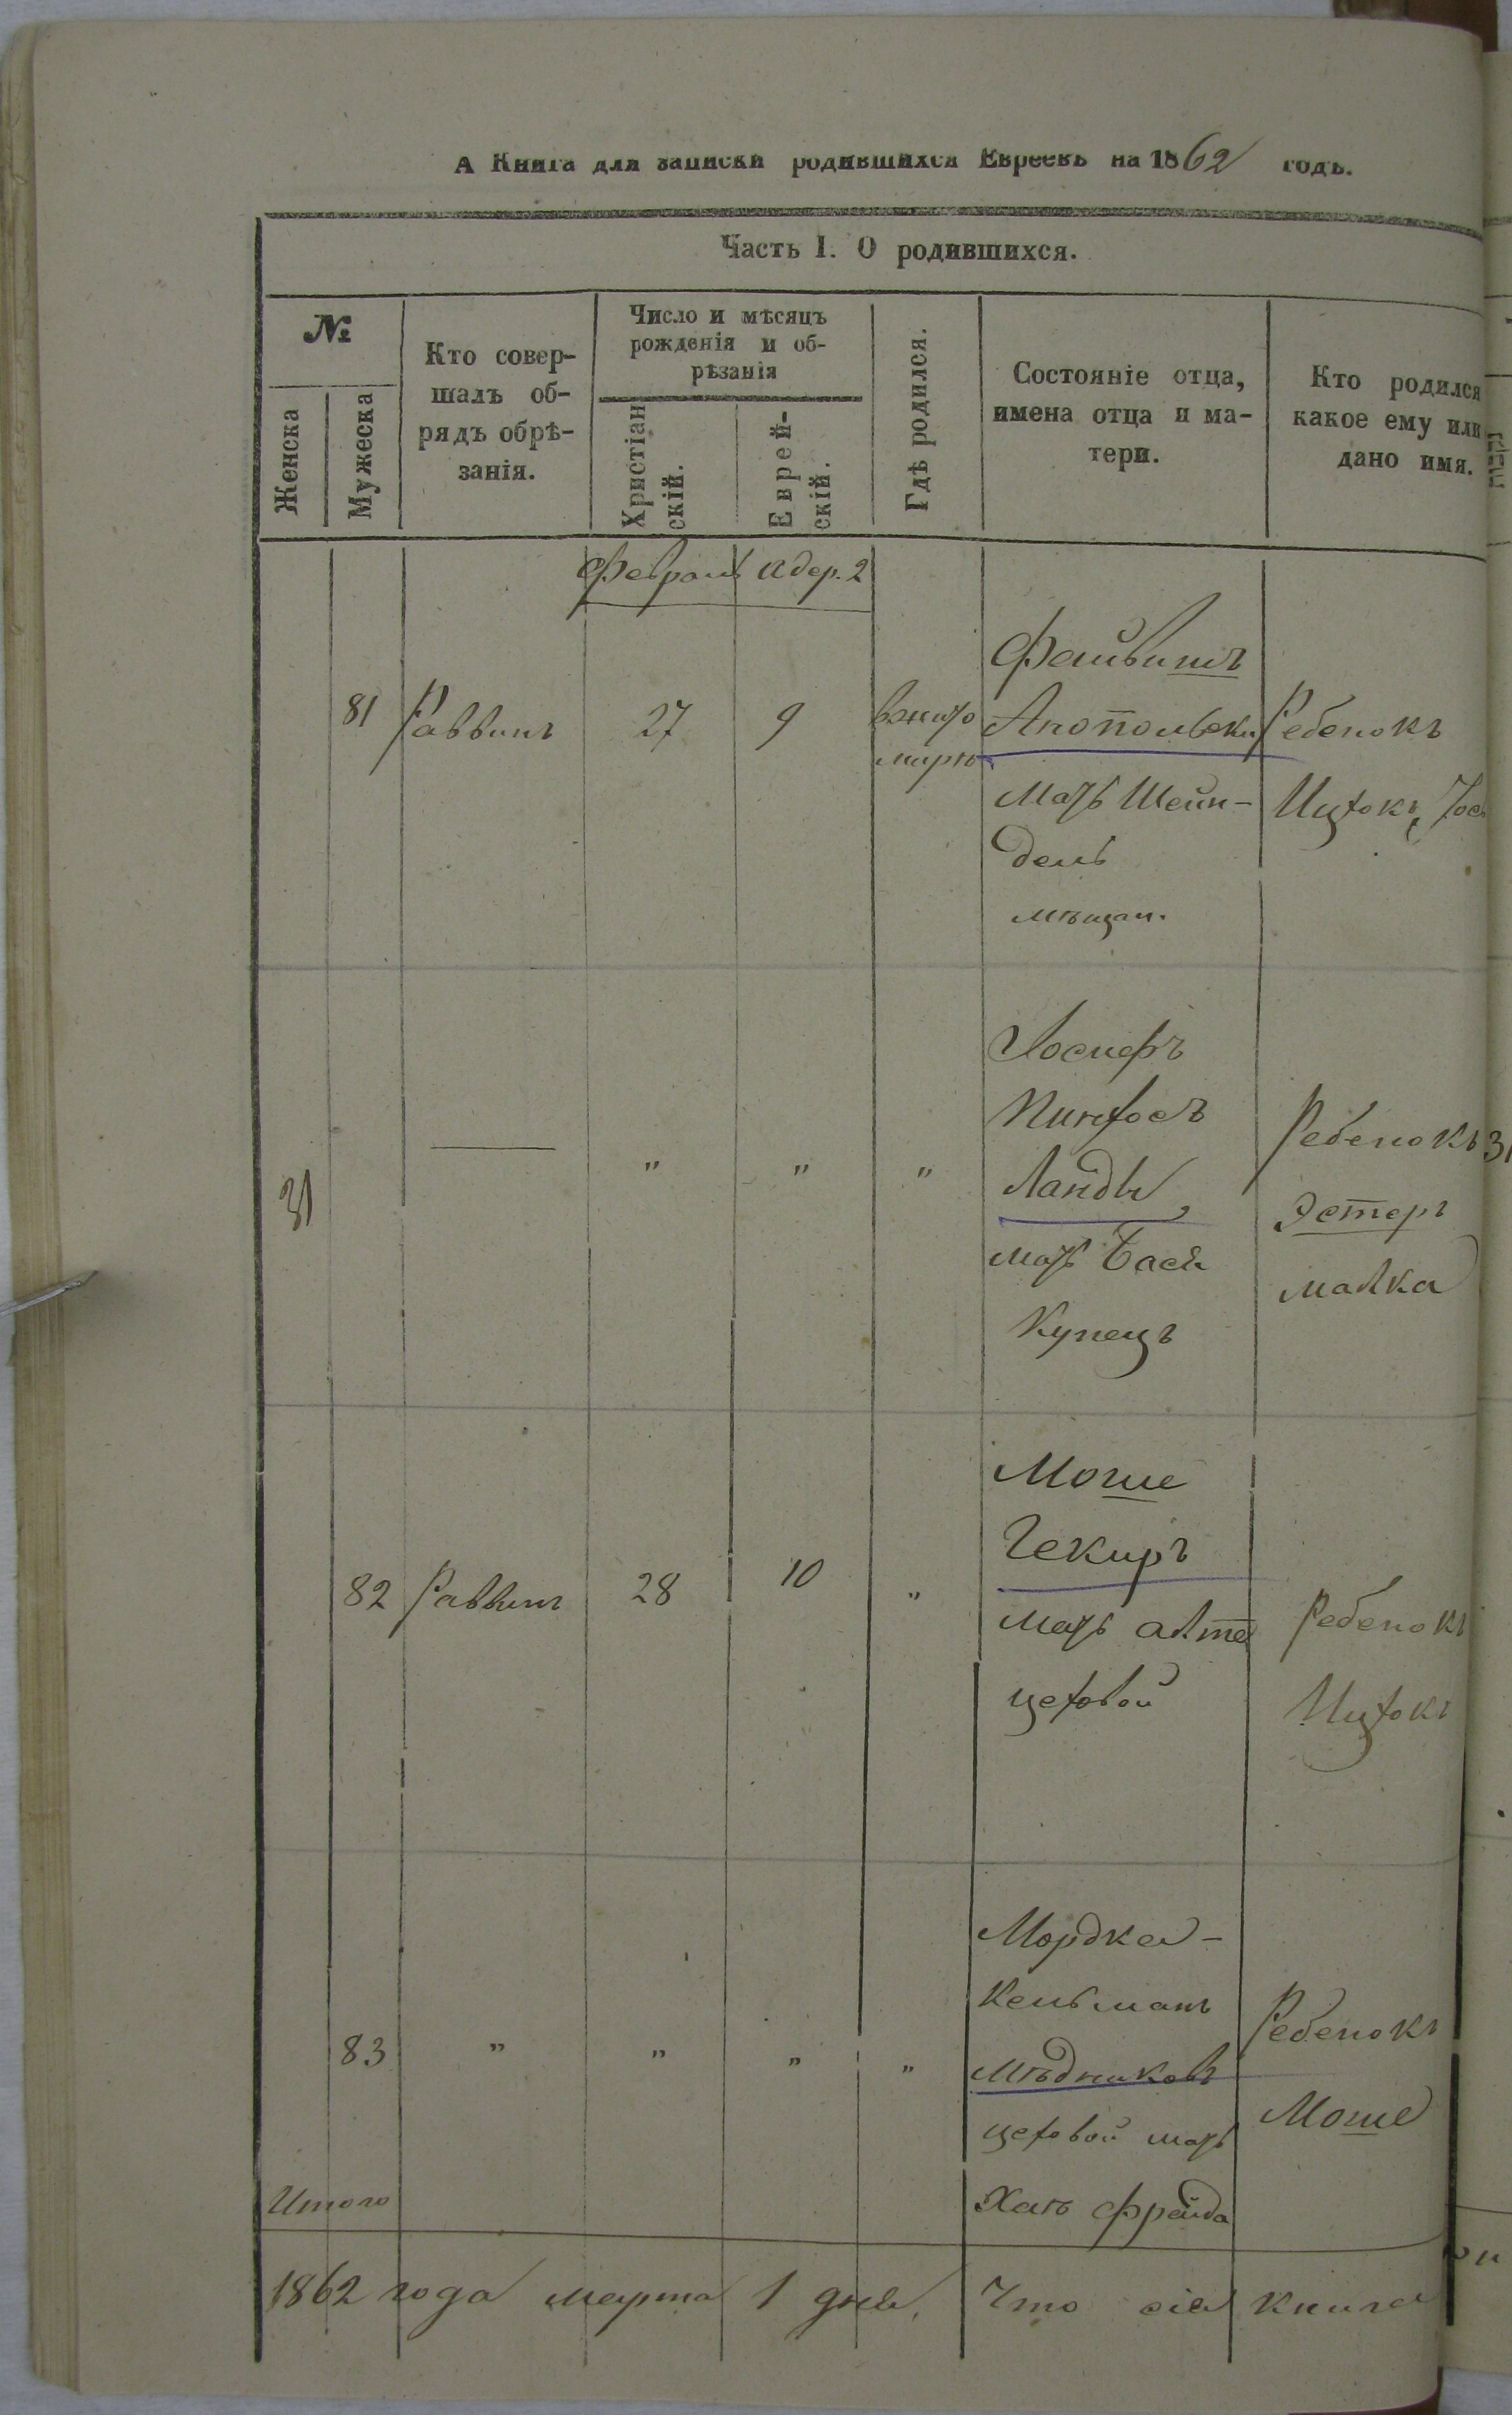 А Книга для записки родившихся Евреевъ на 1862 годъ.
Часть I. О родившихся.
№
Женска
Мужеска
Кто совер-
шалъ об-
рядъ обрѣ-
занія.
Число и мѣсяцъ
рожденія и об-
рѣзанія
Христіан
скій.
Еврей-
скій.
Гдѣ родился.
Состояніе отца,
имена отца и ма-
тери.
Кто родился
какое ему или
дано имя.
Февраль Адер. 2
81 Раввинъ 27 9
вжито
мирѣ
Файвишъ
Апопольски
мать Шейн-
дель
мѣщан.
Ребенокъ
Ицхокъ,
31 — " " "
Іосифъ
Пинхосъ
Ланды
мать Бася
Купецъ
Ребенокъ
Эстеръ
малка
31
82 Раввинъ 28 10 "
Моше
Чекиръ
мать алте
цеховой
Ребенокъ
Ицхокъ
83 " " " "
Мордка-
Кельманъ
Мѣдниковъ
цеховой мать
Хаѣ фрейда
Ребенокъ
Моше
Итого
1862 года марта 1 дня, Что сія книга